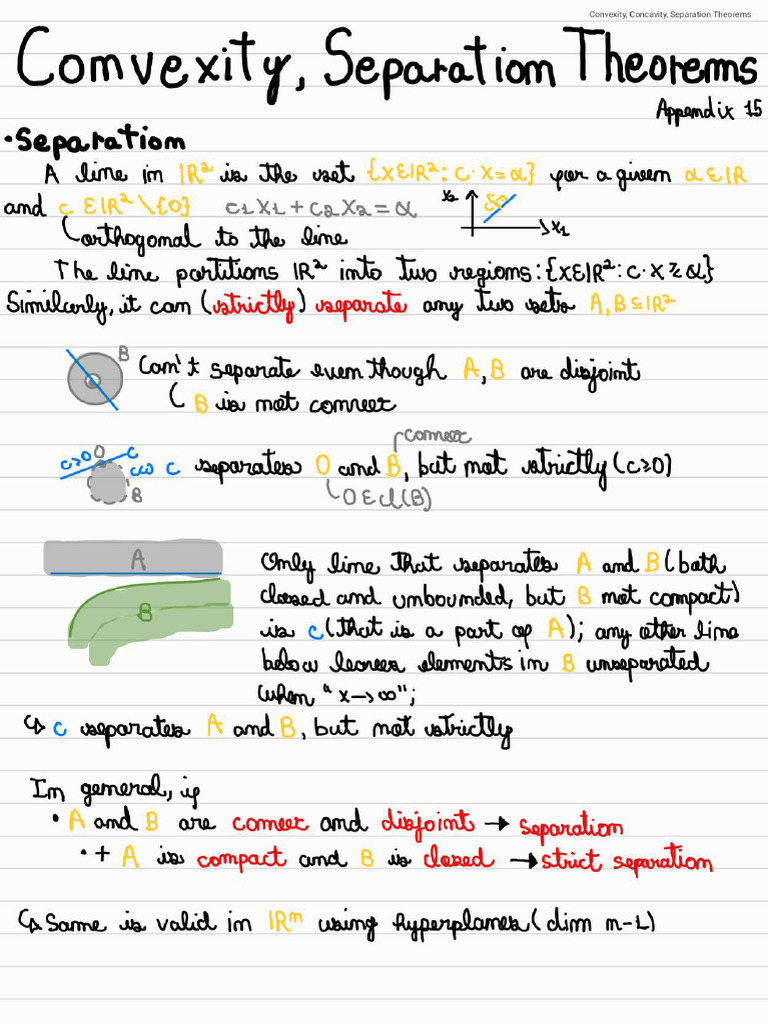 Convexity, Concavity, Separation Theorems
Convexity, Separation Theorems
Appendix 15
• Separation
A line in ℝ² is the set {x∈ℝ²: c·x=α} for a given α∈ℝ
and c∈ℝ²\{0} c1x1+c2x2=α
x2
x1
orthogonal to the line
The line partitions ℝ² into two regions: {x∈ℝ²: c·x≷α}
Similarly, it can (strictly) separate any two sets A,B⊆ℝ²
B Can't separate even though A,B are disjoint
B is not convex
convex
c>0 0 c c<0 c separates 0 and B, but not strictly (c≥0)
B 0∈cl(B)
A
B
Only line that separates A and B (both
closed and unbounded, but B not compact)
is c (that is a part of A); any other line
below leaves elements in B unseparated
when "x→∞";
↳ c separates A and B, but not strictly
In general, if
• A and B are convex and disjoint → separation
• + A is compact and B is closed → strict separation
↳ Same is valid in ℝⁿ using hyperplanes (dim n-1)